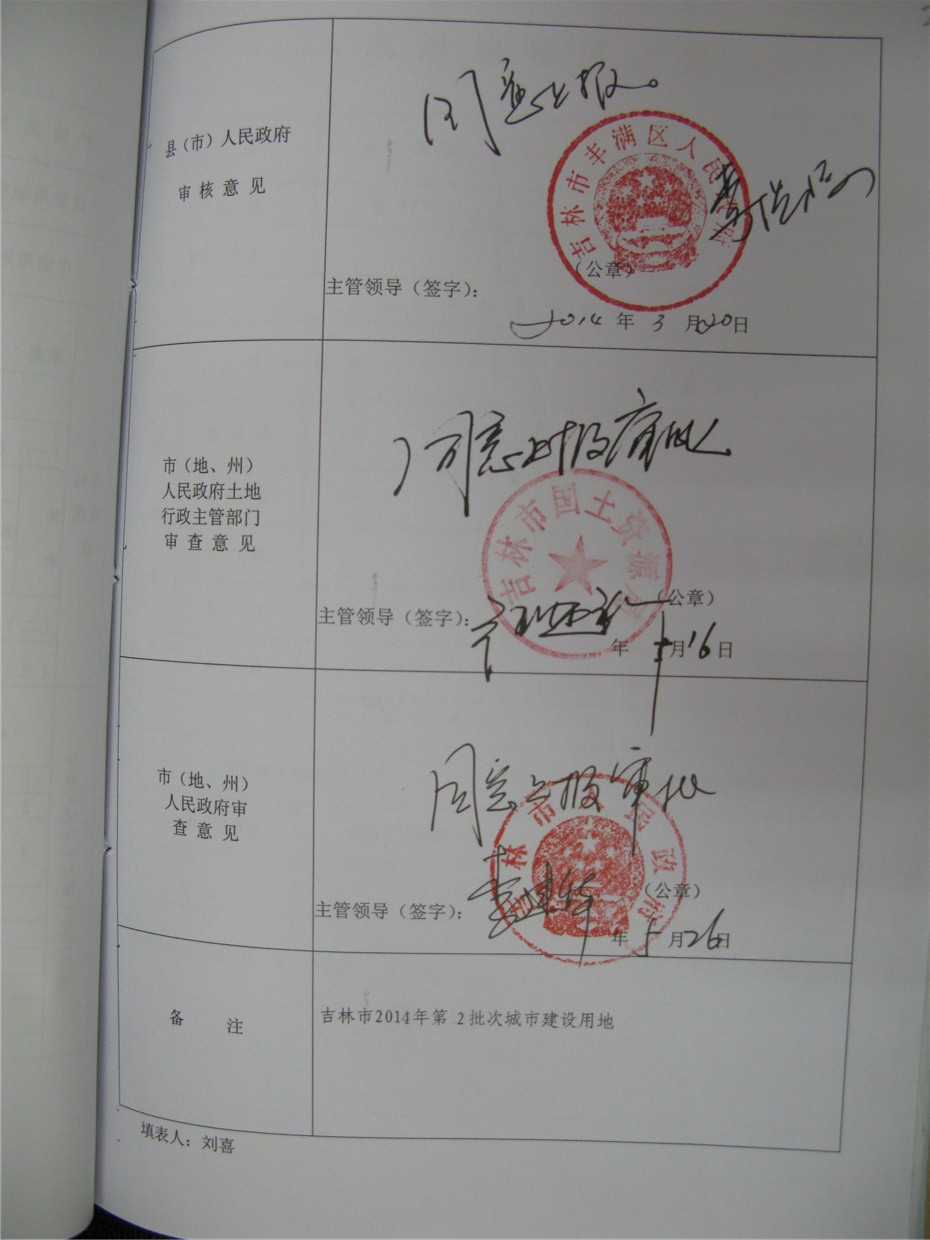 县（市）人民政府
审核意见
同意上报。
吉林市丰满区人民
（公章）
主管领导（签字）：
2014年3月20日
市（地、州）
人民政府土地
行政主管部门
审查意见
同意上报审批
吉林市国土资源局
（公章）
主管领导（签字）：
年 月16日
市（地、州）
人民政府审
查意见
同意上报审批
林市 民政府
（公章）
主管领导（签字）：
年5月26日
备 注
吉林市2014年第 2批次城市建设用地
填表人：刘喜